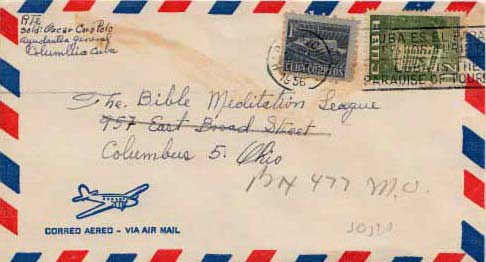 Rte
Sold: Oscar Caro Polo
Ayudantia general
Columbia Cuba
1
CUBA CORREOS
1956
CUBA ES EL PARA
PARADISE OF TOURIS
The. Bible Meditation League
957 East Broad Street
Columbus 5. Ohio
477 M.O.
CORREO AEREO - VIA AIR MAIL